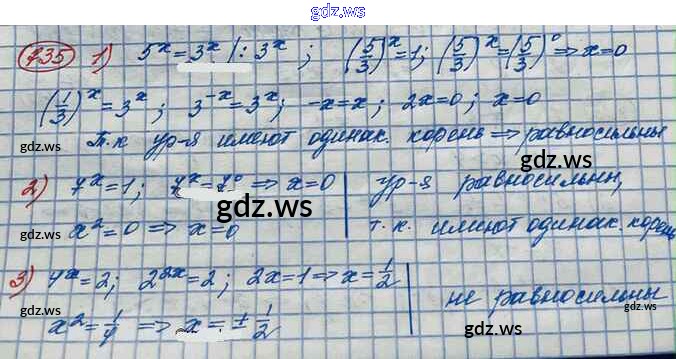 gdz.ws
735 1) 5ˣ = 3ˣ |: 3ˣ ; (5/3)ˣ = 1; (5/3)ˣ = (5/3)⁰ ⇒ x = 0
(1/3)ˣ = 3ˣ ; 3⁻ˣ = 3ˣ; -x = x; 2x = 0; x = 0
gdz.ws
Т.к ур-я имеют одинак. корень ⇒ равносильны
gdz.ws gdz.ws
2) 7ˣ = 1; 7ˣ = 7⁰ ⇒ x = 0 | ур-я равносильны,
gdz.ws
x² = 0 ⇒ x = 0 | т.к. имеют одинак. корень
gdz.ws gdz.ws
3) 4ˣ = 2; 2²ˣ = 2; 2x = 1 ⇒ x = 1/2 | не равносильны
x² = 1/4 ⇒ x = ± 1/2
gdz.ws gdz.ws
gdz.ws